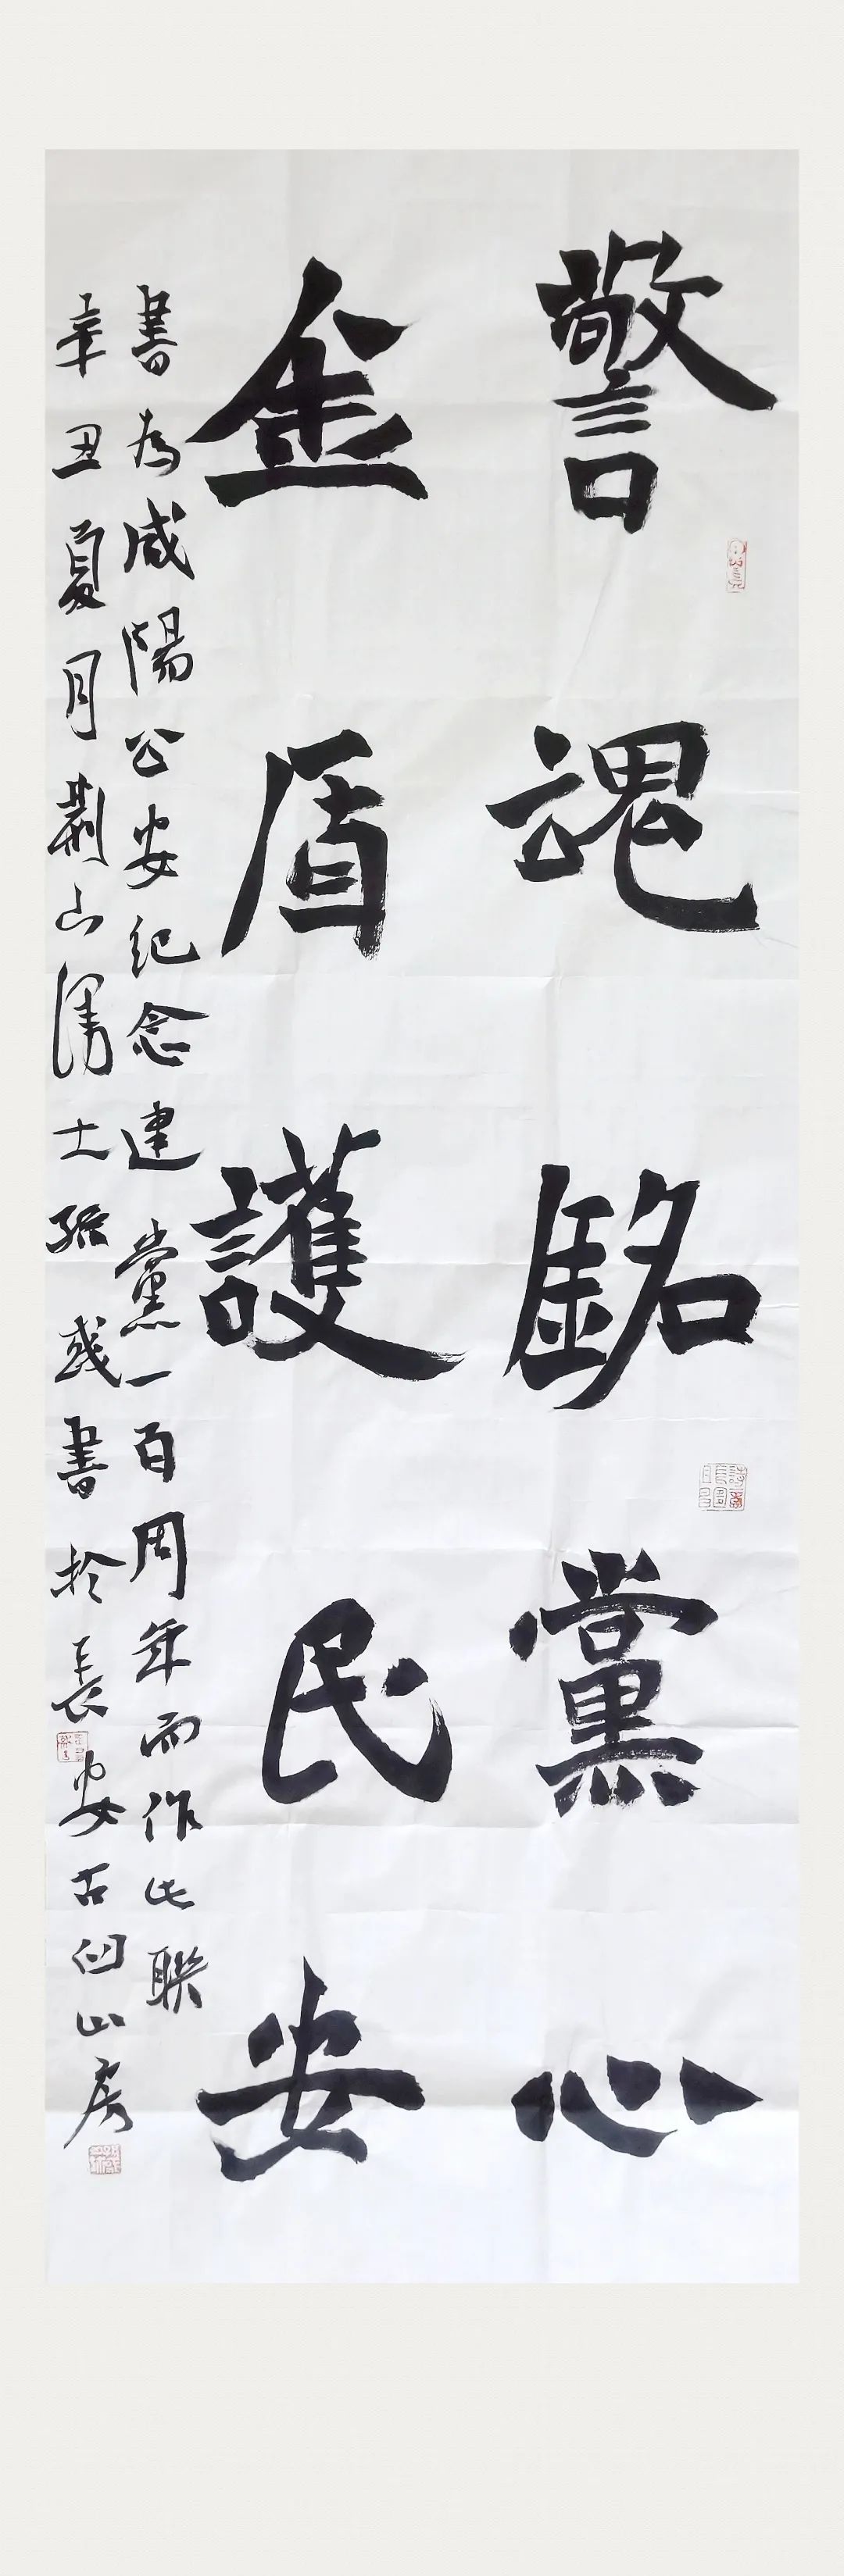 警魂銘黨心
金盾護民安
書為咸陽公安紀念建黨一百周年而作此聯
辛丑夏月荆山漢士張或書於長安古臼山房